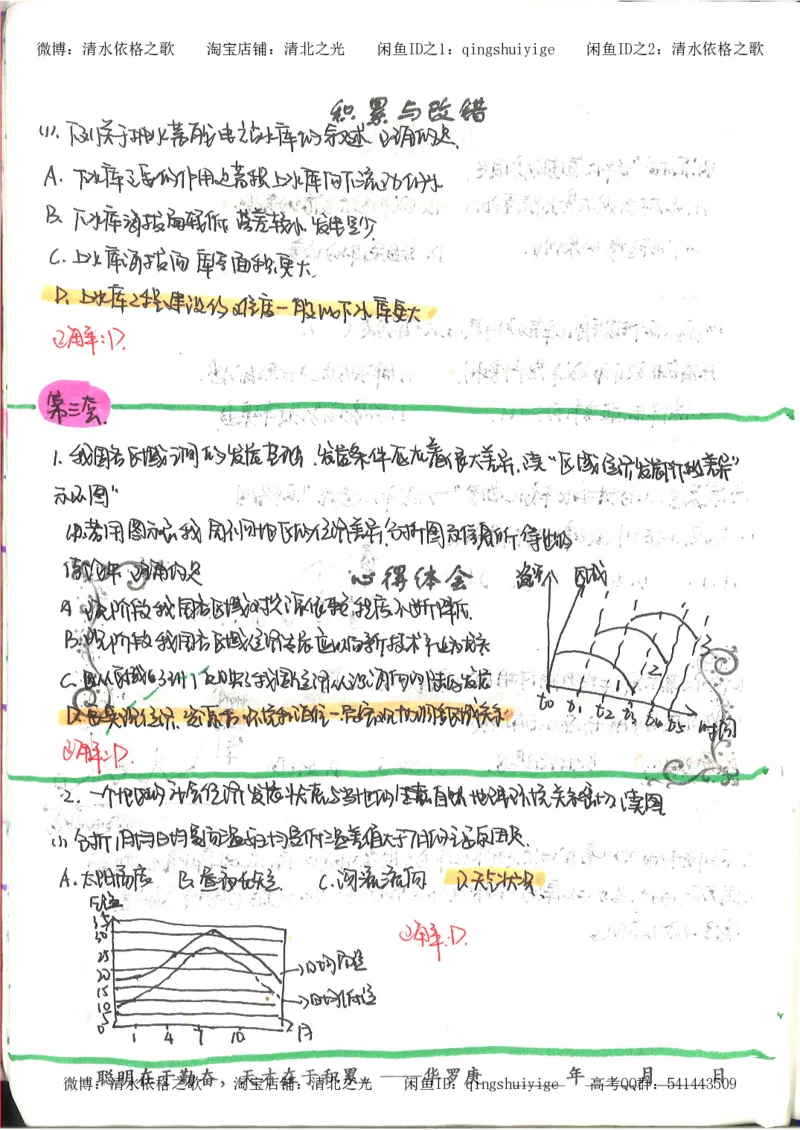 微博：清水依格之歌 淘宝店铺：清北之光 闲鱼ID之1：qingshuiyige 闲鱼ID之2：清水依格之歌
积累与改错
(1). 下列关于抽水蓄能电站水库的叙述 正确的是
A. 下水库主要的作用是蓄积上水库向下流动的水
B. 下水库海拔面较低 落差较小 发电量少
C. 上水库海拔高 库号面积更大.
D. 上水库工程建设的难度一般比下水库更大
正解：D.
第三套.
1. 我国各区域之间的发展基础、发展条件还存在很大差异,读“区域经济发展阶段差异”
示意图“
若用图示表示我国不同地区的经济差异,分析图示信息所得出的
结论中 正确的是
心得体会
A 现阶段我国各区域对资源依赖程度不断降低
B. 现阶段我国各区域经济发展应以高新技术产业为主
正解：D.
区域
t0 t1 t2 t3 t4 t5 时间
1 2 3
2. 一个地区的社会经济发展状态与当地的自然地理环境关系密切,读图
(1) 分析1月均日均最高温与日均最低温差值大于7月的主要原因是
A. 太阳高度 B. 昼夜长短 C. 洋流流向 D. 天气状况
正解：D.
35
30
25
20
15
10
5
0
1 4 7 10 月
日均高温
日均低温
聪明在于勤奋，天才在于积累 ——华罗庚 年 月 日
微博：清水依格之歌 淘宝店铺：清北之光 闲鱼ID：qingshuiyige 高考QQ群：541443509